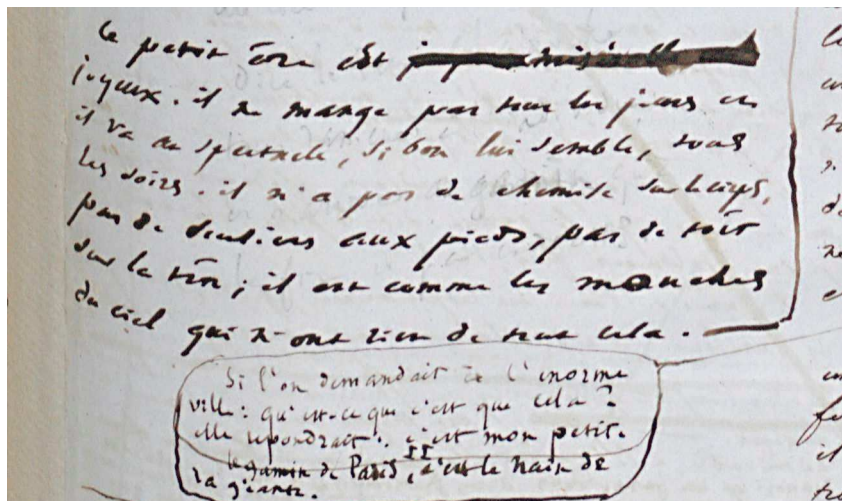 Ce petit être est
joyeux. il ne mange pas tous les jours et
il va au spectacle, si bon lui semble, tous
les soirs. il n'a pas de chemise sur le corps,
pas de souliers aux pieds, pas de toit
sur la tête ; il est comme les mouches
du ciel qui n'ont rien de tout cela.
Si l'on demandait à l'énorme
ville : qu'est-ce que c'est que cela ?
elle répondrait : c'est mon petit.
II
le gamin de Paris, c'est le nain de
la géante.